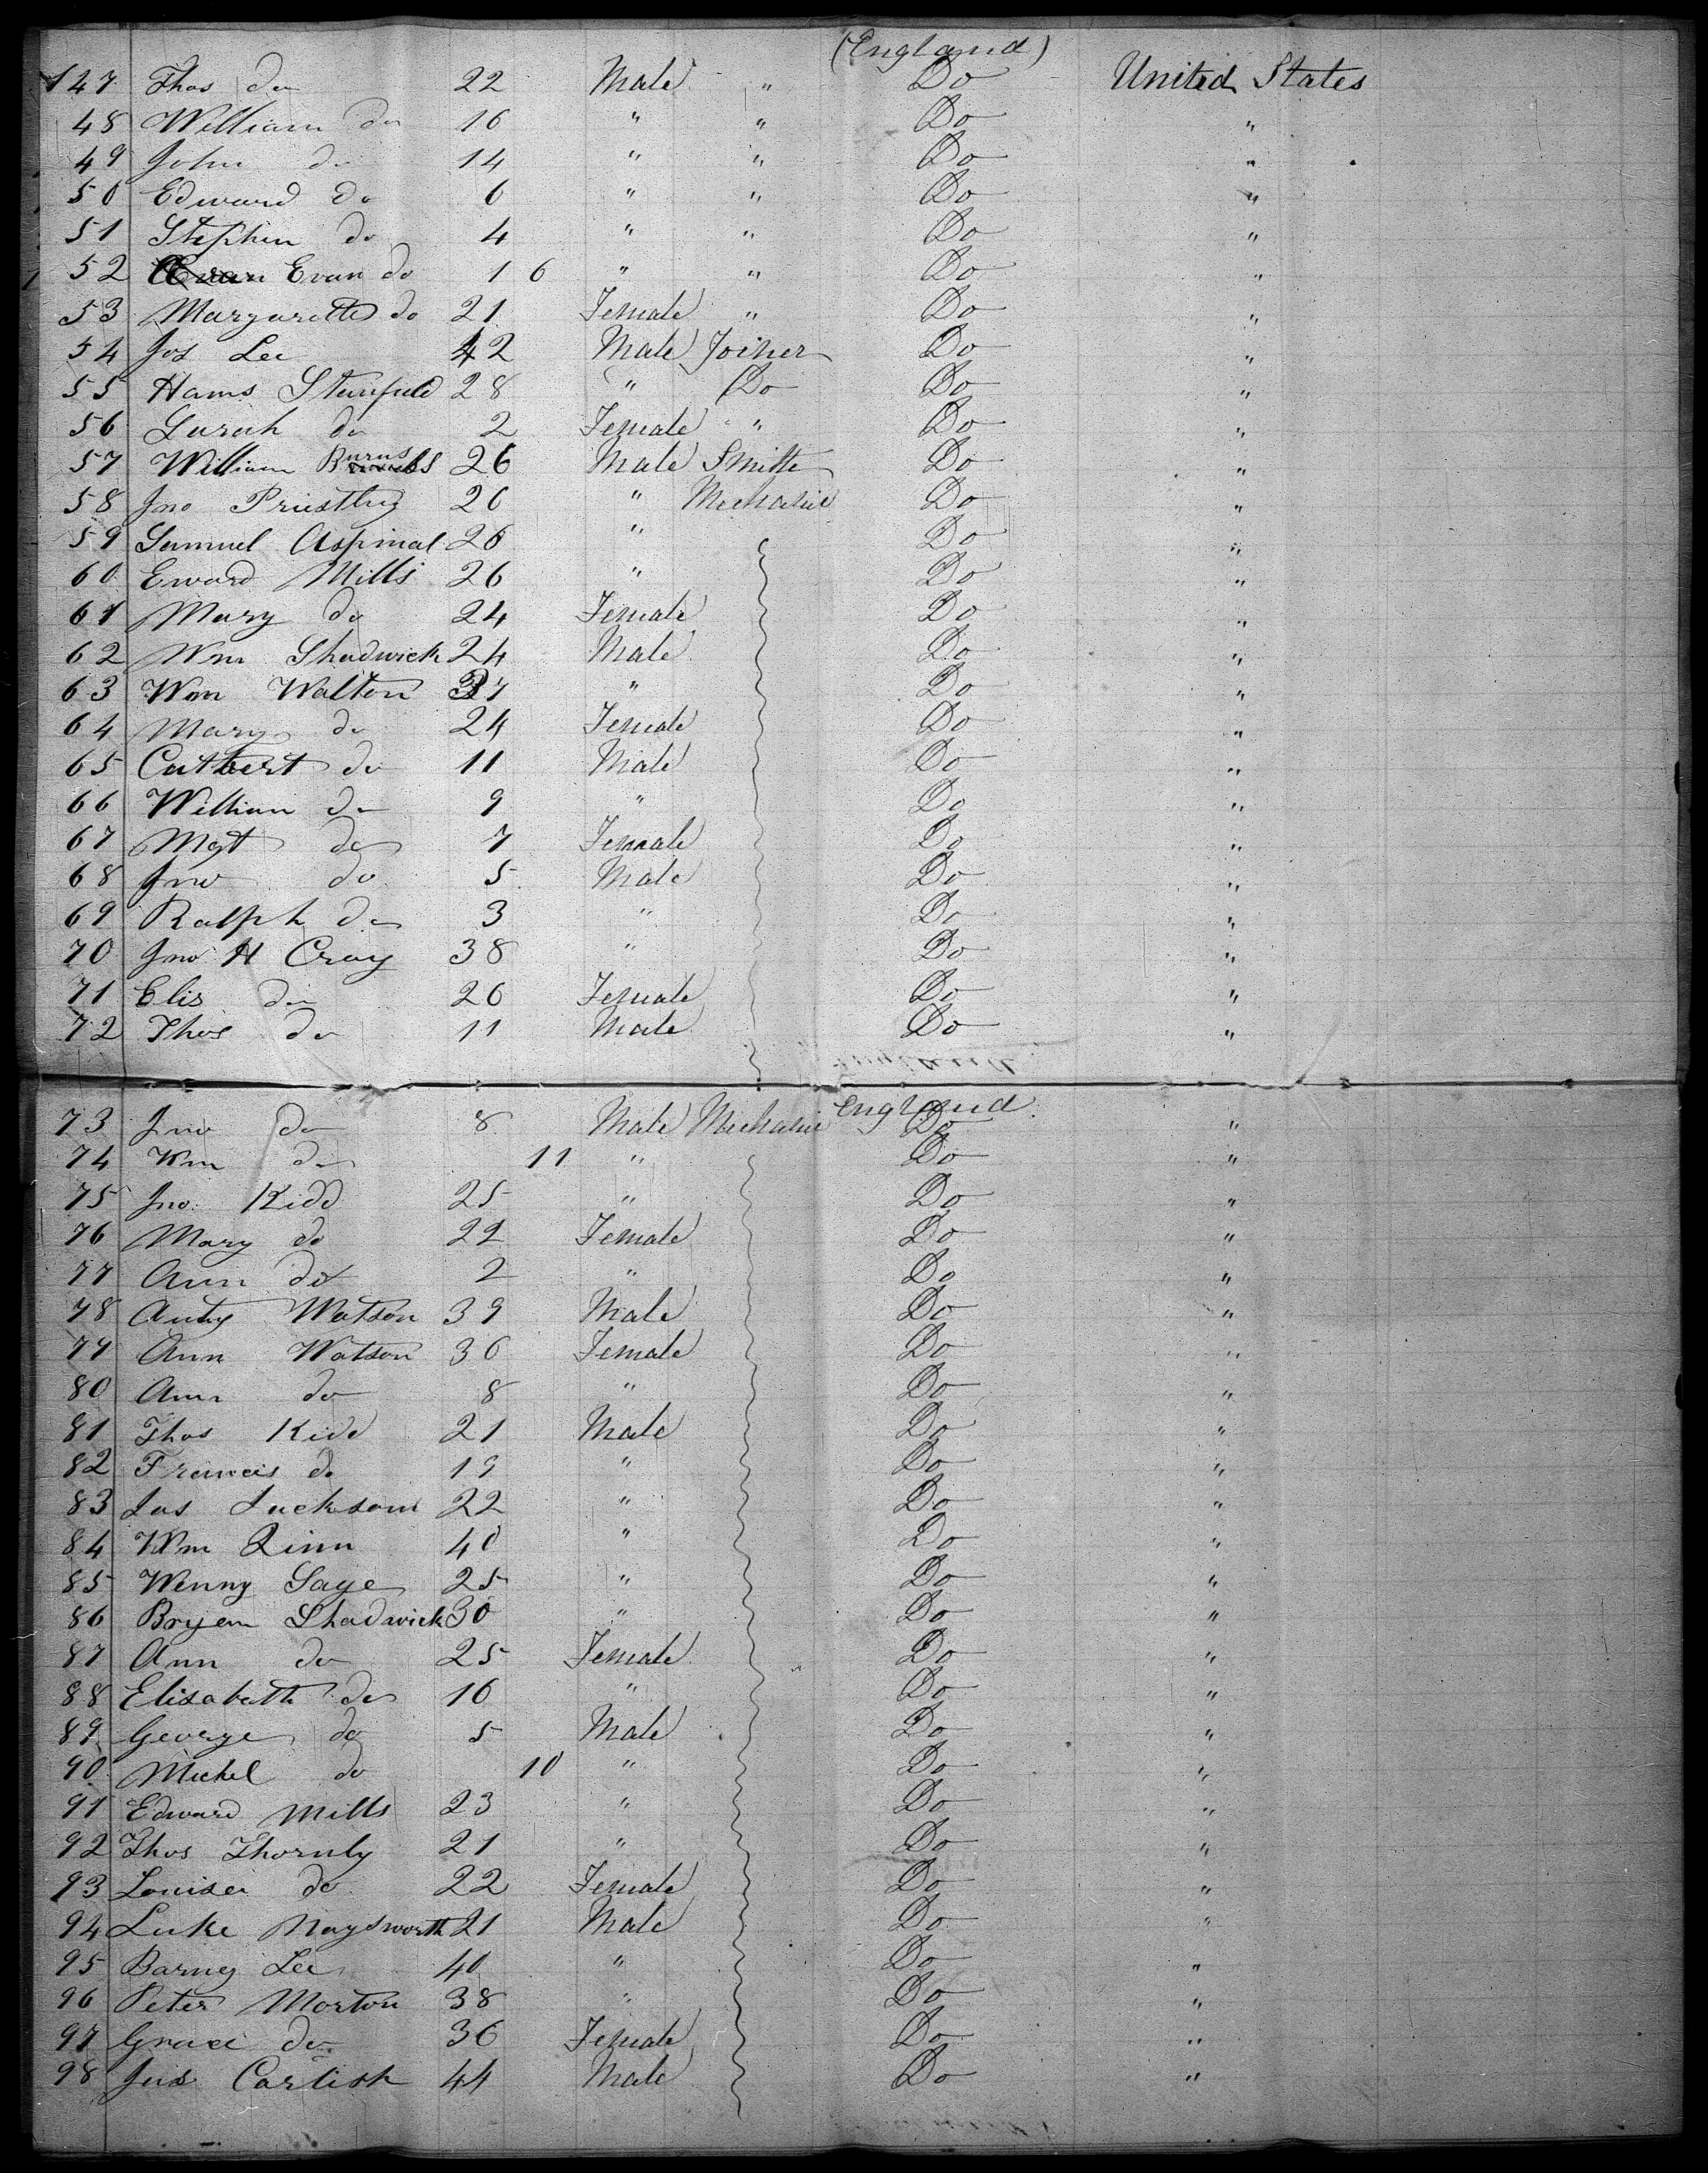 (England)
147 Thos do 22 Male " Do United States
48 William do 16 " " Do "
49 John do 14 " " Do "
50 Edward do 6 " " Do "
51 Stephen do 4 " " Do "
52 Evan do 1 6 " " Do "
53 Margarette do 21 Female " Do "
54 Jos Lee 42 Male Joiner Do "
55 Hams 28 " Do Do "
56 Sarah do 2 Female " Do "
57 William Burns 26 Male Smith Do "
58 Jno Priestley 26 " Mechanic Do "
59 Samuel Aspinal 26 " Do "
60 Eward Mills 26 " Do "
61 Mary do 24 Female Do "
62 Wm Shadwick 24 Male Do "
63 Wm Walton 37 " Do "
64 Mary do 24 Female Do "
65 Cutbert do 11 Male Do "
66 William do 9 " Do "
67 Mgt do 7 Female Do "
68 Jno do 5 Male Do "
69 Ralph do 3 " Do "
70 Jno H Cray 38 " Do "
71 Elis do 26 Female Do "
72 Thos do 11 Male Do "
England
73 Jno do 8 Male Mechanic Do "
74 Wm do 11 " Do "
75 Jno Kidd 25 " Do "
76 Mary do 22 Female Do "
77 Ann do 2 " Do "
78 Anty Watson 39 Male Do "
79 Ann Watson 36 Female Do "
80 Ann do 8 " Do "
81 Thos Kidd 21 Male Do "
82 Francis do 19 " Do "
83 Jas Jackson 22 " Do "
84 Wm Qinn 40 " Do "
85 Wenny Saye 25 " Do "
86 Bryan Shadwick 30 " Do "
87 Ann do 25 Female Do "
88 Elisabeth do 16 " Do "
89 George do 5 Male Do "
90 Michel do 10 " Do "
91 Edward Mills 23 " Do "
92 Thos Thornly 21 " Do "
93 Louisa do 22 Female Do "
94 Luke Naysworth 21 Male Do "
95 Barney Lee 40 " Do "
96 Peter Morton 38 " Do "
97 Grace do 36 Female Do "
98 Jas Carlish 44 Male Do "